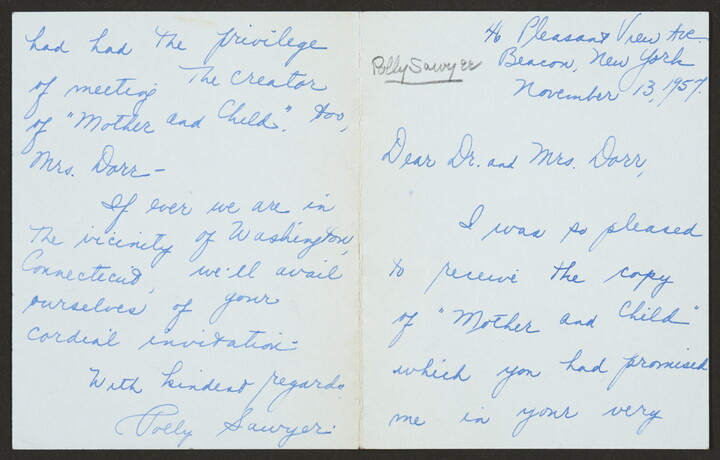 46 Pleasant View Ave.
Beacon, New York
November 13, 1957.
Polly Sawyer
Dear Dr. and Mrs. Dorr,
I was so pleased
to receive the copy
of "Mother and Child"
which you had promised
me in your very
had had the privilege
of meeting The Creator
of "Mother and Child", too,
Mrs. Dorr –
If ever we are in
the vicinity of Washington,
Connecticut, we'll avail
ourselves of your
cordial invitation –
With kindest regards
Polly Sawyer.